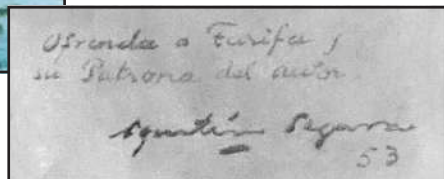 Ofrenda a Tarifa y
su Patrona del autor
Agustín Segura
53